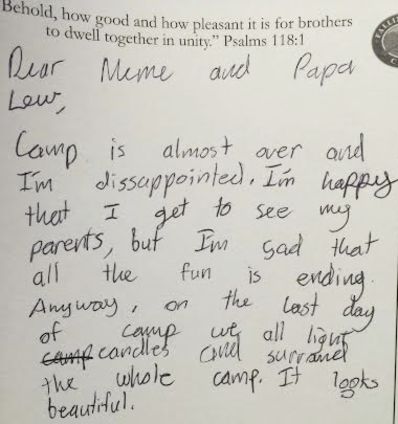 Behold, how good and how pleasant it is for brothers
to dwell together in unity.” Psalms 118:1
Dear Meme and Papa
Lew,
Camp is almost over and
I'm dissappointed. I'm happy
that I get to see my
parents, but I'm sad that
all the fun is ending.
Anyway, on the last day
of camp we all light
camp candles and surround
the whole camp. It looks
beautiful.